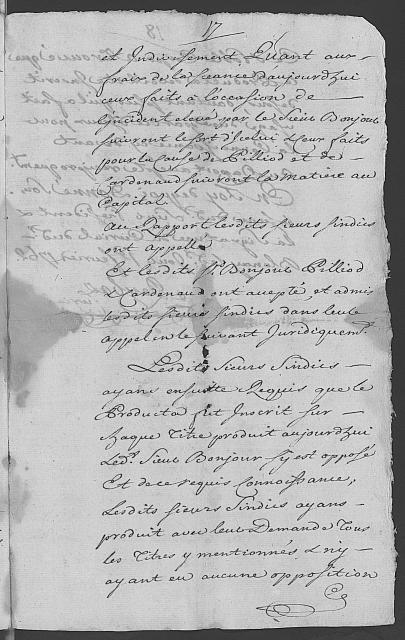 17
et Indivisement Quant aux
frais de la seance daujourdhui
ceux faits à loccasion de
lincident elevé par le Sieur Bonjour
suivront le sort d'icelui & Ceux faits
pour la Cause de Pilliod et de
Cardenaud suivront la matiere au
Capital.
Au Raport lesdits sieurs sindics
ont appellé
Et lesdits Srs Bonjour Pilliod
& Cardenaud ont acepté, et admis
lesdits sieurs sindics dans leur
appel en le suivant Juridiquemt.
Lesdits Sieurs Sindics
ayans ensuitte Requis que le
Producta fut Inscrit sur
chaque Titre produit aujourdhui
Ledt. Sieur Bonjour s'y est opposé
Et de ce requis Connoissance,
Lesdits sieurs Sindics ayans
produit avec leur Demande Tous
les Titres y mentionnés & n'y
ayant eu aucune opposition